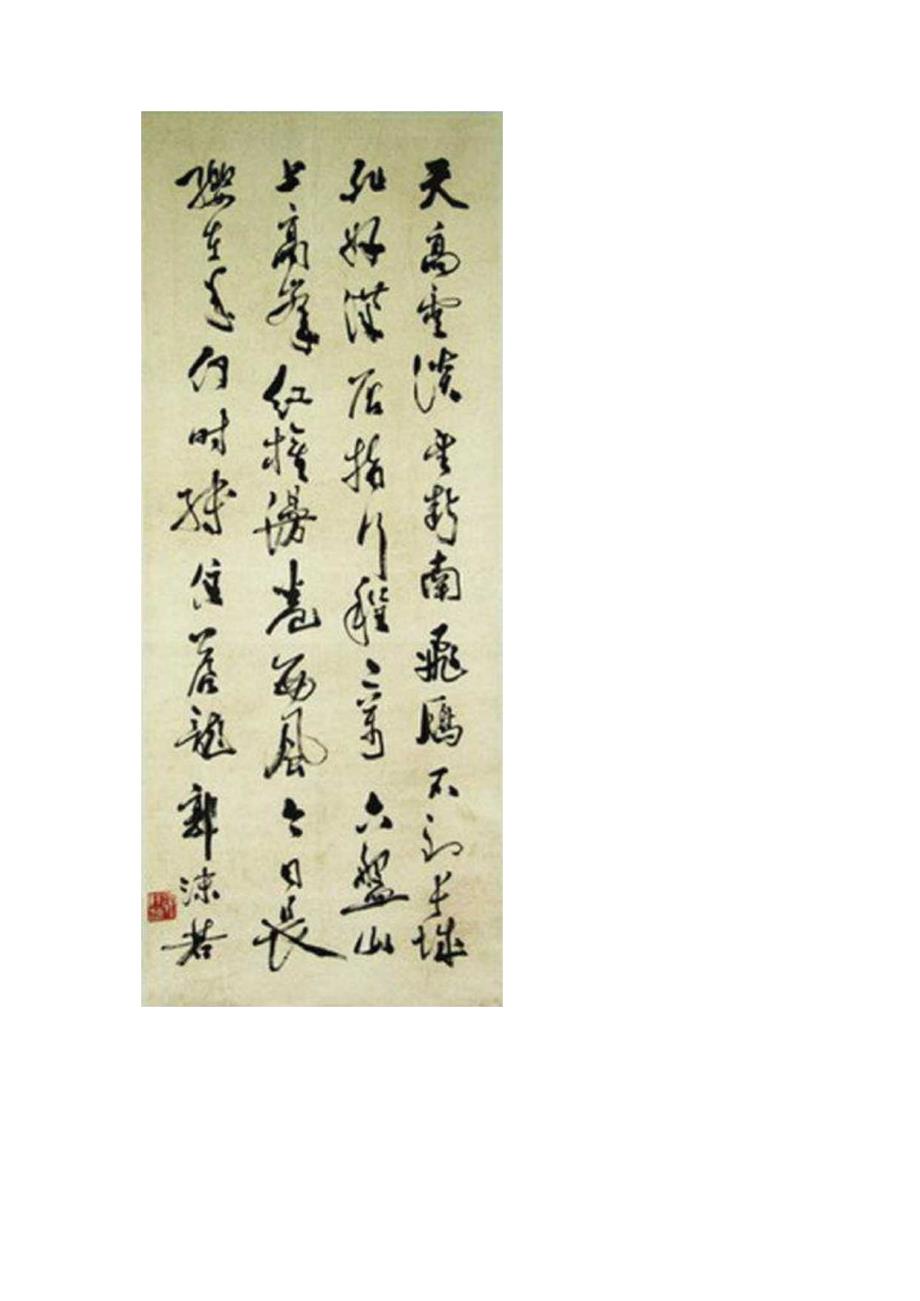 天高雲淡望斷南飛雁不到長城
非好漢屈指行程二萬六盤山
上高峯紅旗漫卷西風今日長
纓在手何時縛住蒼龍郭沫若